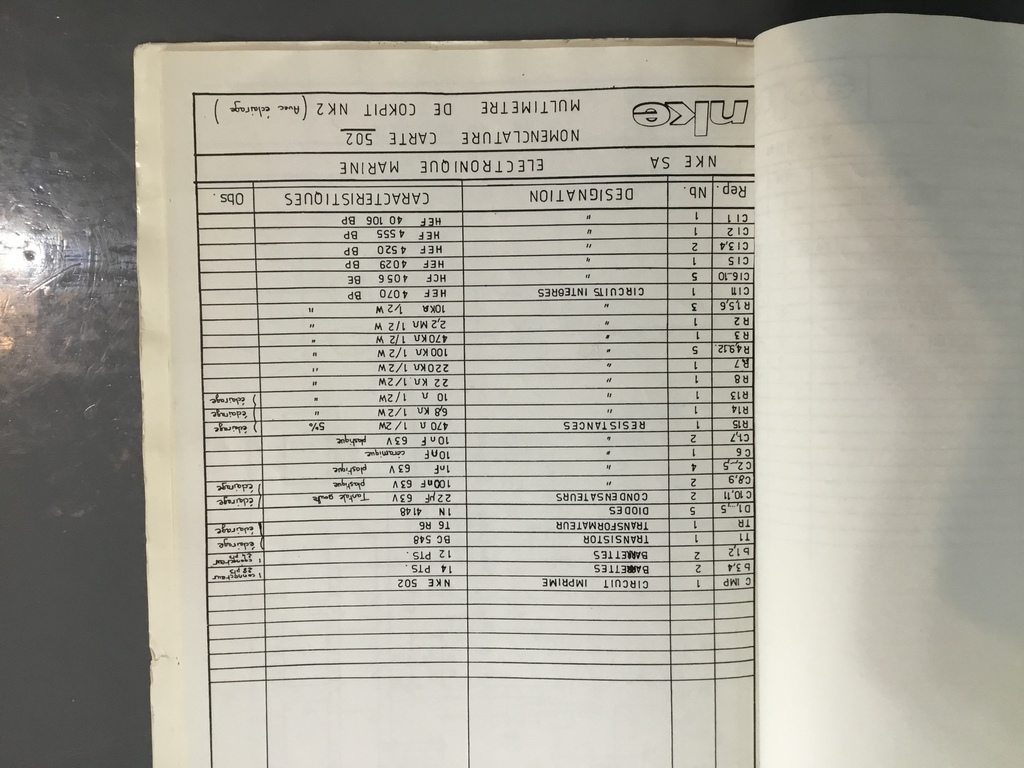 C IMP 1 CIRCUIT IMPRIME NKE 502
b 3,4 2 BARRETTES 14 PTS. 1 connecteur 28 pts
b 1,2 2 BARRETTES 12 PTS. 1 connecteur 24 pts
T1 1 TRANSISTOR BC 548 ) éclairage
TR 1 TRANSFORMATEUR T6 R6 ) éclairage
D1,..,5 5 DIODES 1N 4148
C 10,11 2 CONDENSATEURS 22µF 63V Tantale goute ) éclairage
C8,9 2 " 100nF 63V plastique ) éclairage
C 2,..,5 4 " 1nF 63V plastique
C 6 1 " 10nF céramique
C1,7 2 " 10nF 63V plastique
R15 1 RESISTANCES 470 Ω 1/2W 5% ) éclairage
R14 1 " 6,8 KΩ 1/2W " ) éclairage
R13 1 " 10 Ω 1/2W " ) éclairage
R 8 1 " 22 KΩ 1/2W "
R 7 1 " 220KΩ 1/2W "
R 4,9..12. 5 " 100KΩ 1/2 W "
R 3 1 " 470KΩ 1/2 W "
R 2 1 " 2,2 MΩ 1/2 W "
R 1,5,6 3 " 10KΩ 1/2 W "
CI11 1 CIRCUITS INTEGRES HEF 4070 BP
CI6..10 5 " HCF 4056 BE
CI5 1 " HEF 4029 BP
CI3,4 2 " HEF 4520 BP
CI2 1 " HEF 4555 BP
CI1 1 " HEF 40 106 BP
Rep. Nb. DESIGNATION CARACTERISTIQUES Obs.
NKE SA ELECTRONIQUE MARINE
nke
NOMENCLATURE CARTE 502
MULTIMETRE DE COKPIT NK2 (Avec éclairage)